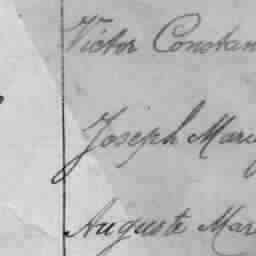 Victor Constan
Joseph Marie
Auguste Mar